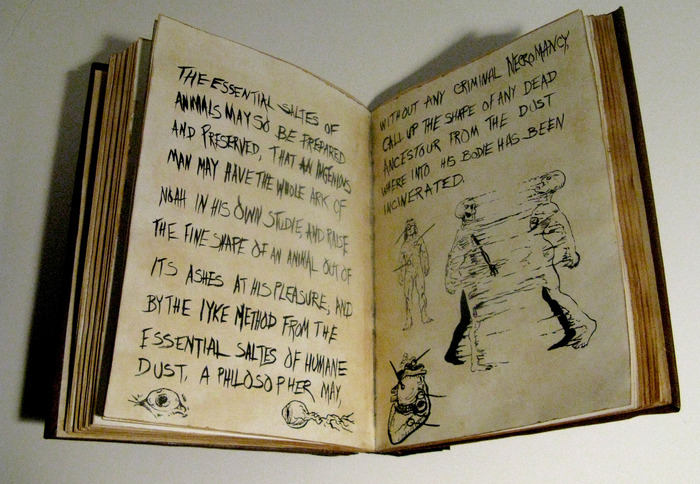 THE ESSENTIAL SALTES OF
ANIMALS MAY SO BE PREPARED
AND PRESERVED, THAT AN INGENIOUS
MAN MAY HAVE THE WHOLE ARK OF
NOAH IN HIS OWN STUDIE, AND RAISE
THE FINE SHAPE OF AN ANIMAL OUT OF
ITS ASHES AT HIS PLEASURE, AND
BY THE LYKE METHOD FROM THE
ESSENTIAL SALTES OF HUMANE
DUST, A PHILOSOPHER MAY,
WITHOUT ANY CRIMINAL NECROMANCY,
CALL UP THE SHAPE OF ANY DEAD
ANCESTOUR FROM THE DUST
WHERE INTO HIS BODIE HAS BEEN
INCINERATED.